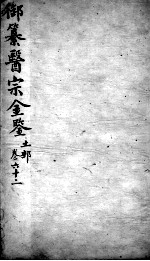 御纂醫宗金鑒
土部
卷六十一